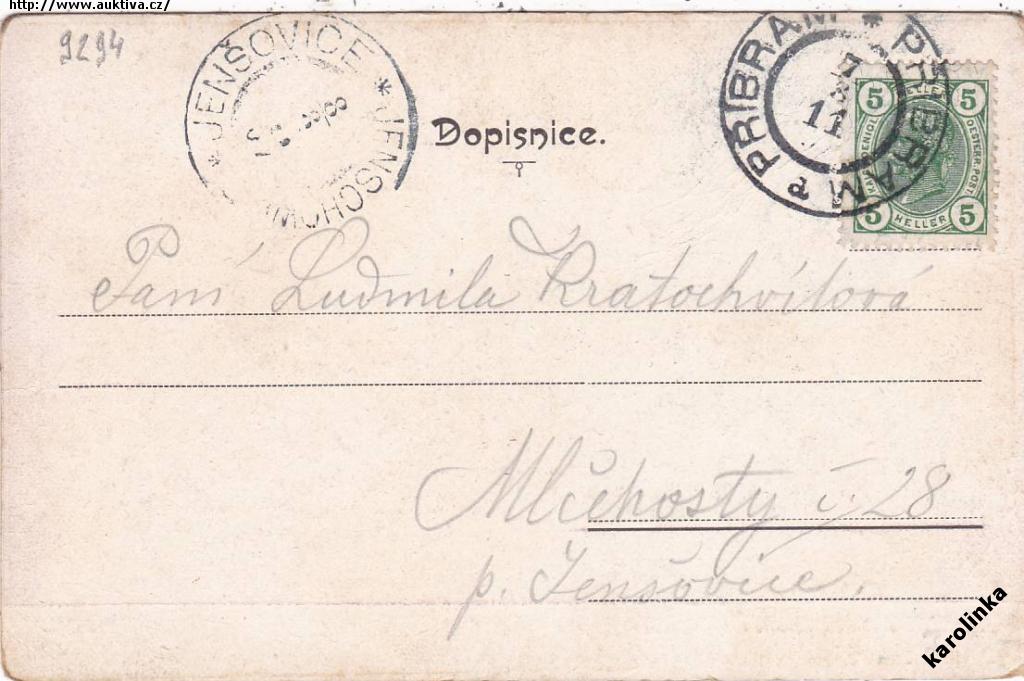 http://www.auktiva.cz/
9294
* JENŠOVICE * JENSCHOWI
PŘÍBRAM * PŘÍBRAM
11
5 HELLER 5
5 HELLER 5
OESTERR. POST
Dopisnice.
Paní Ludmila Kratochvílová
Mlčehosty č. 28
p. Jenšovice.
karolinka